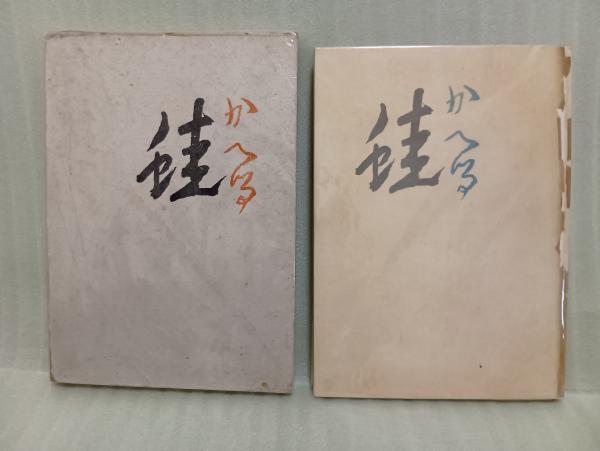 蛙
かへる
蛙
かへる